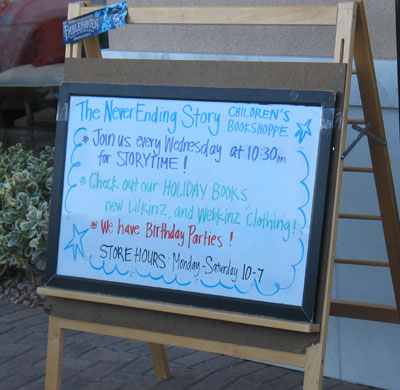 FABLEHAVEN
The NeverEnding Story CHILDREN'S
BOOKSHOPPE
* Join us every Wednesday at 10:30am
for STORYTIME!
* Check out our HOLIDAY BOOKS
new Lilkinz, and Webkinz Clothing!
* We have Birthday Parties!
STORE HOURS: Monday-Saturday 10-7